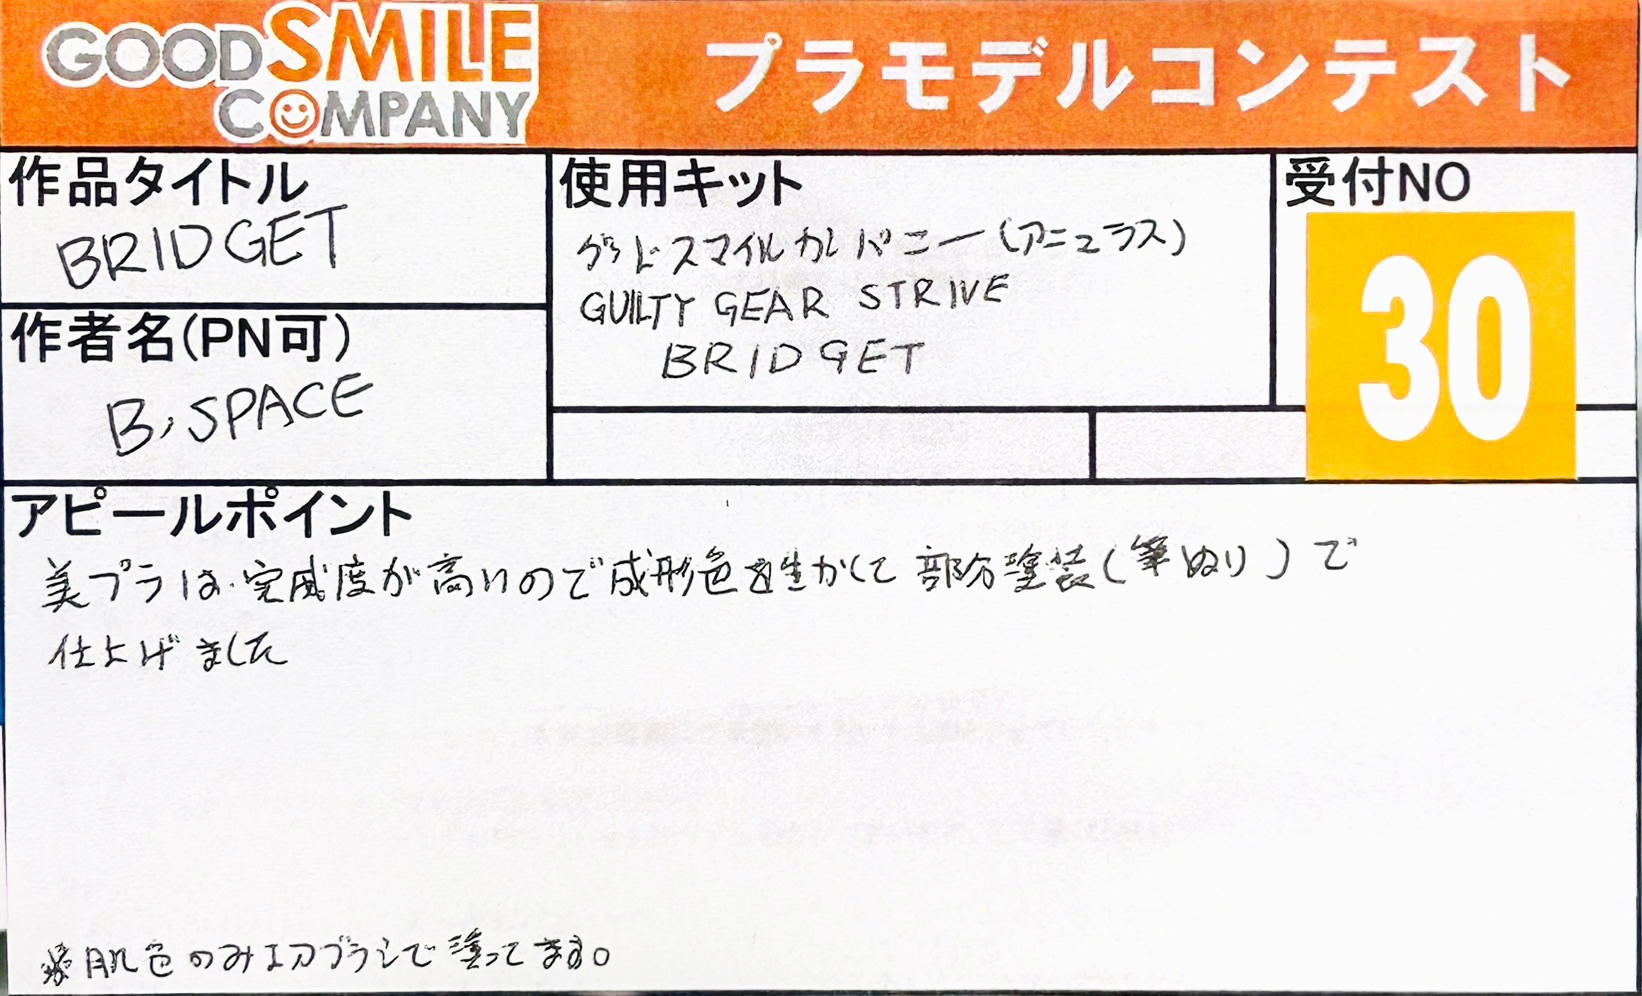 GOODSMILE
COMPANY
プラモデルコンテスト
作品タイトル
BRIDGET
使用キット
グッドスマイルカンパニー(アニュラス)
GUILTY GEAR STRIVE
BRIDGET
受付NO
30
作者名(PN可)
B.SPACE
アピールポイント
美プラは完成度が高いので成形色を生かして部分塗装(筆ぬり)で
仕上げました
※肌色のみエアブラシで塗ってます。